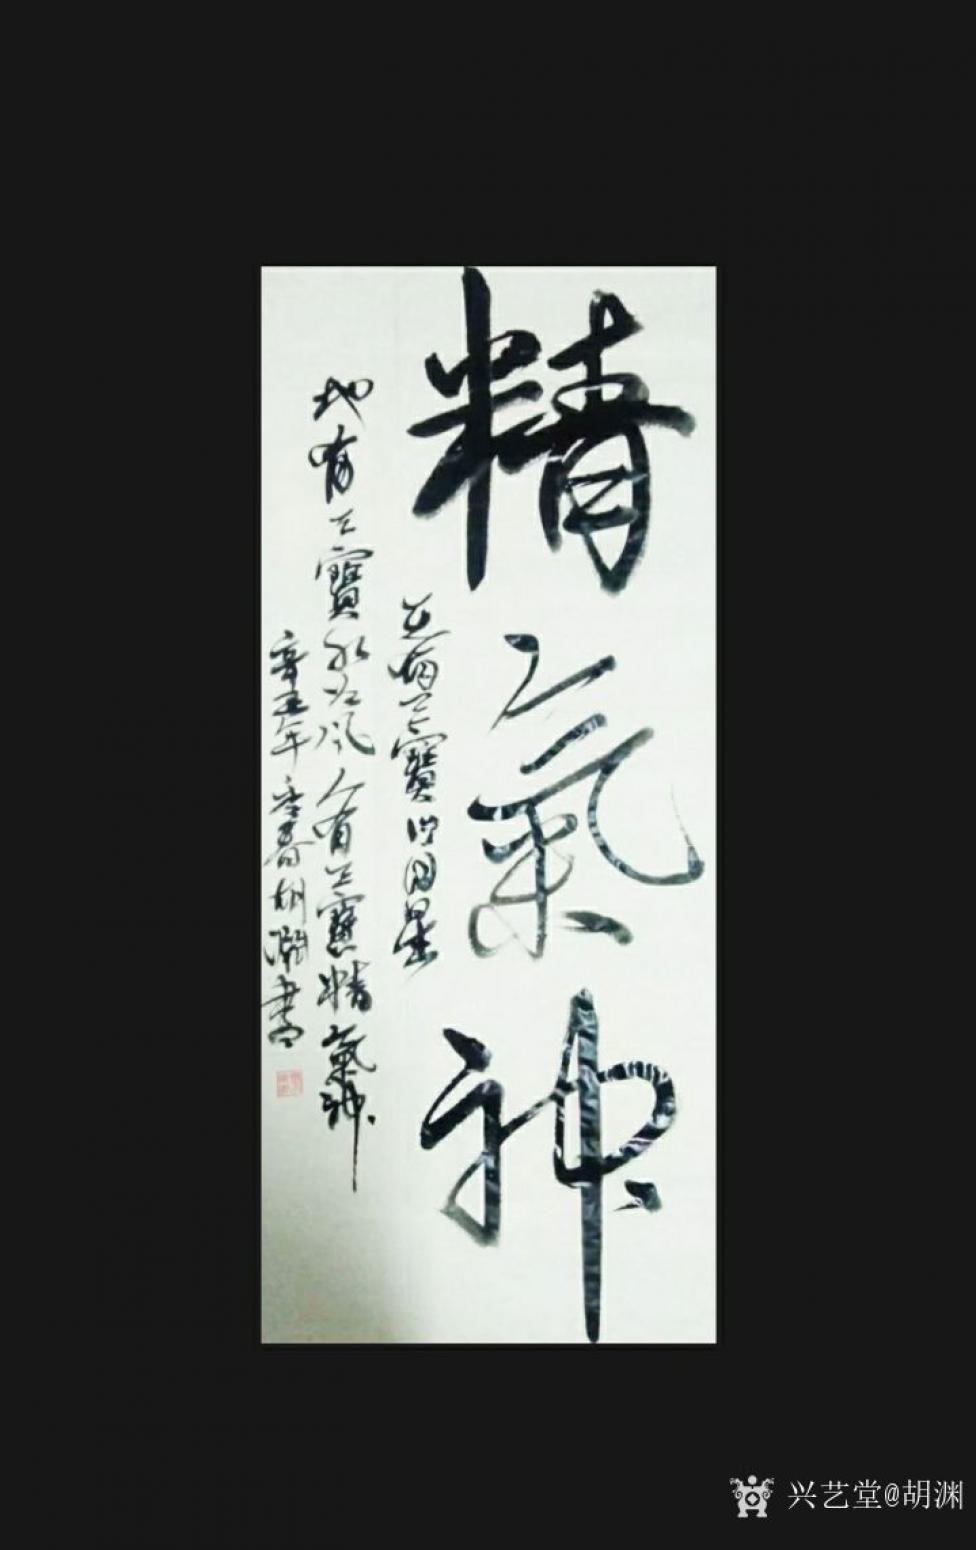 精氣神
天有三寶日月星
地有三寶水火風人有三寶精氣神
辛丑年春胡淵書
兴艺堂@胡渊